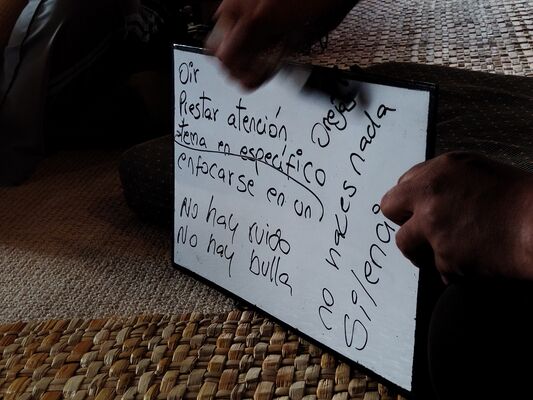 Oir
Prestar atención
tema en específico
enfocarse en un
No hay ruido
No hay bulla
Orejas
no haces nada
Silencio